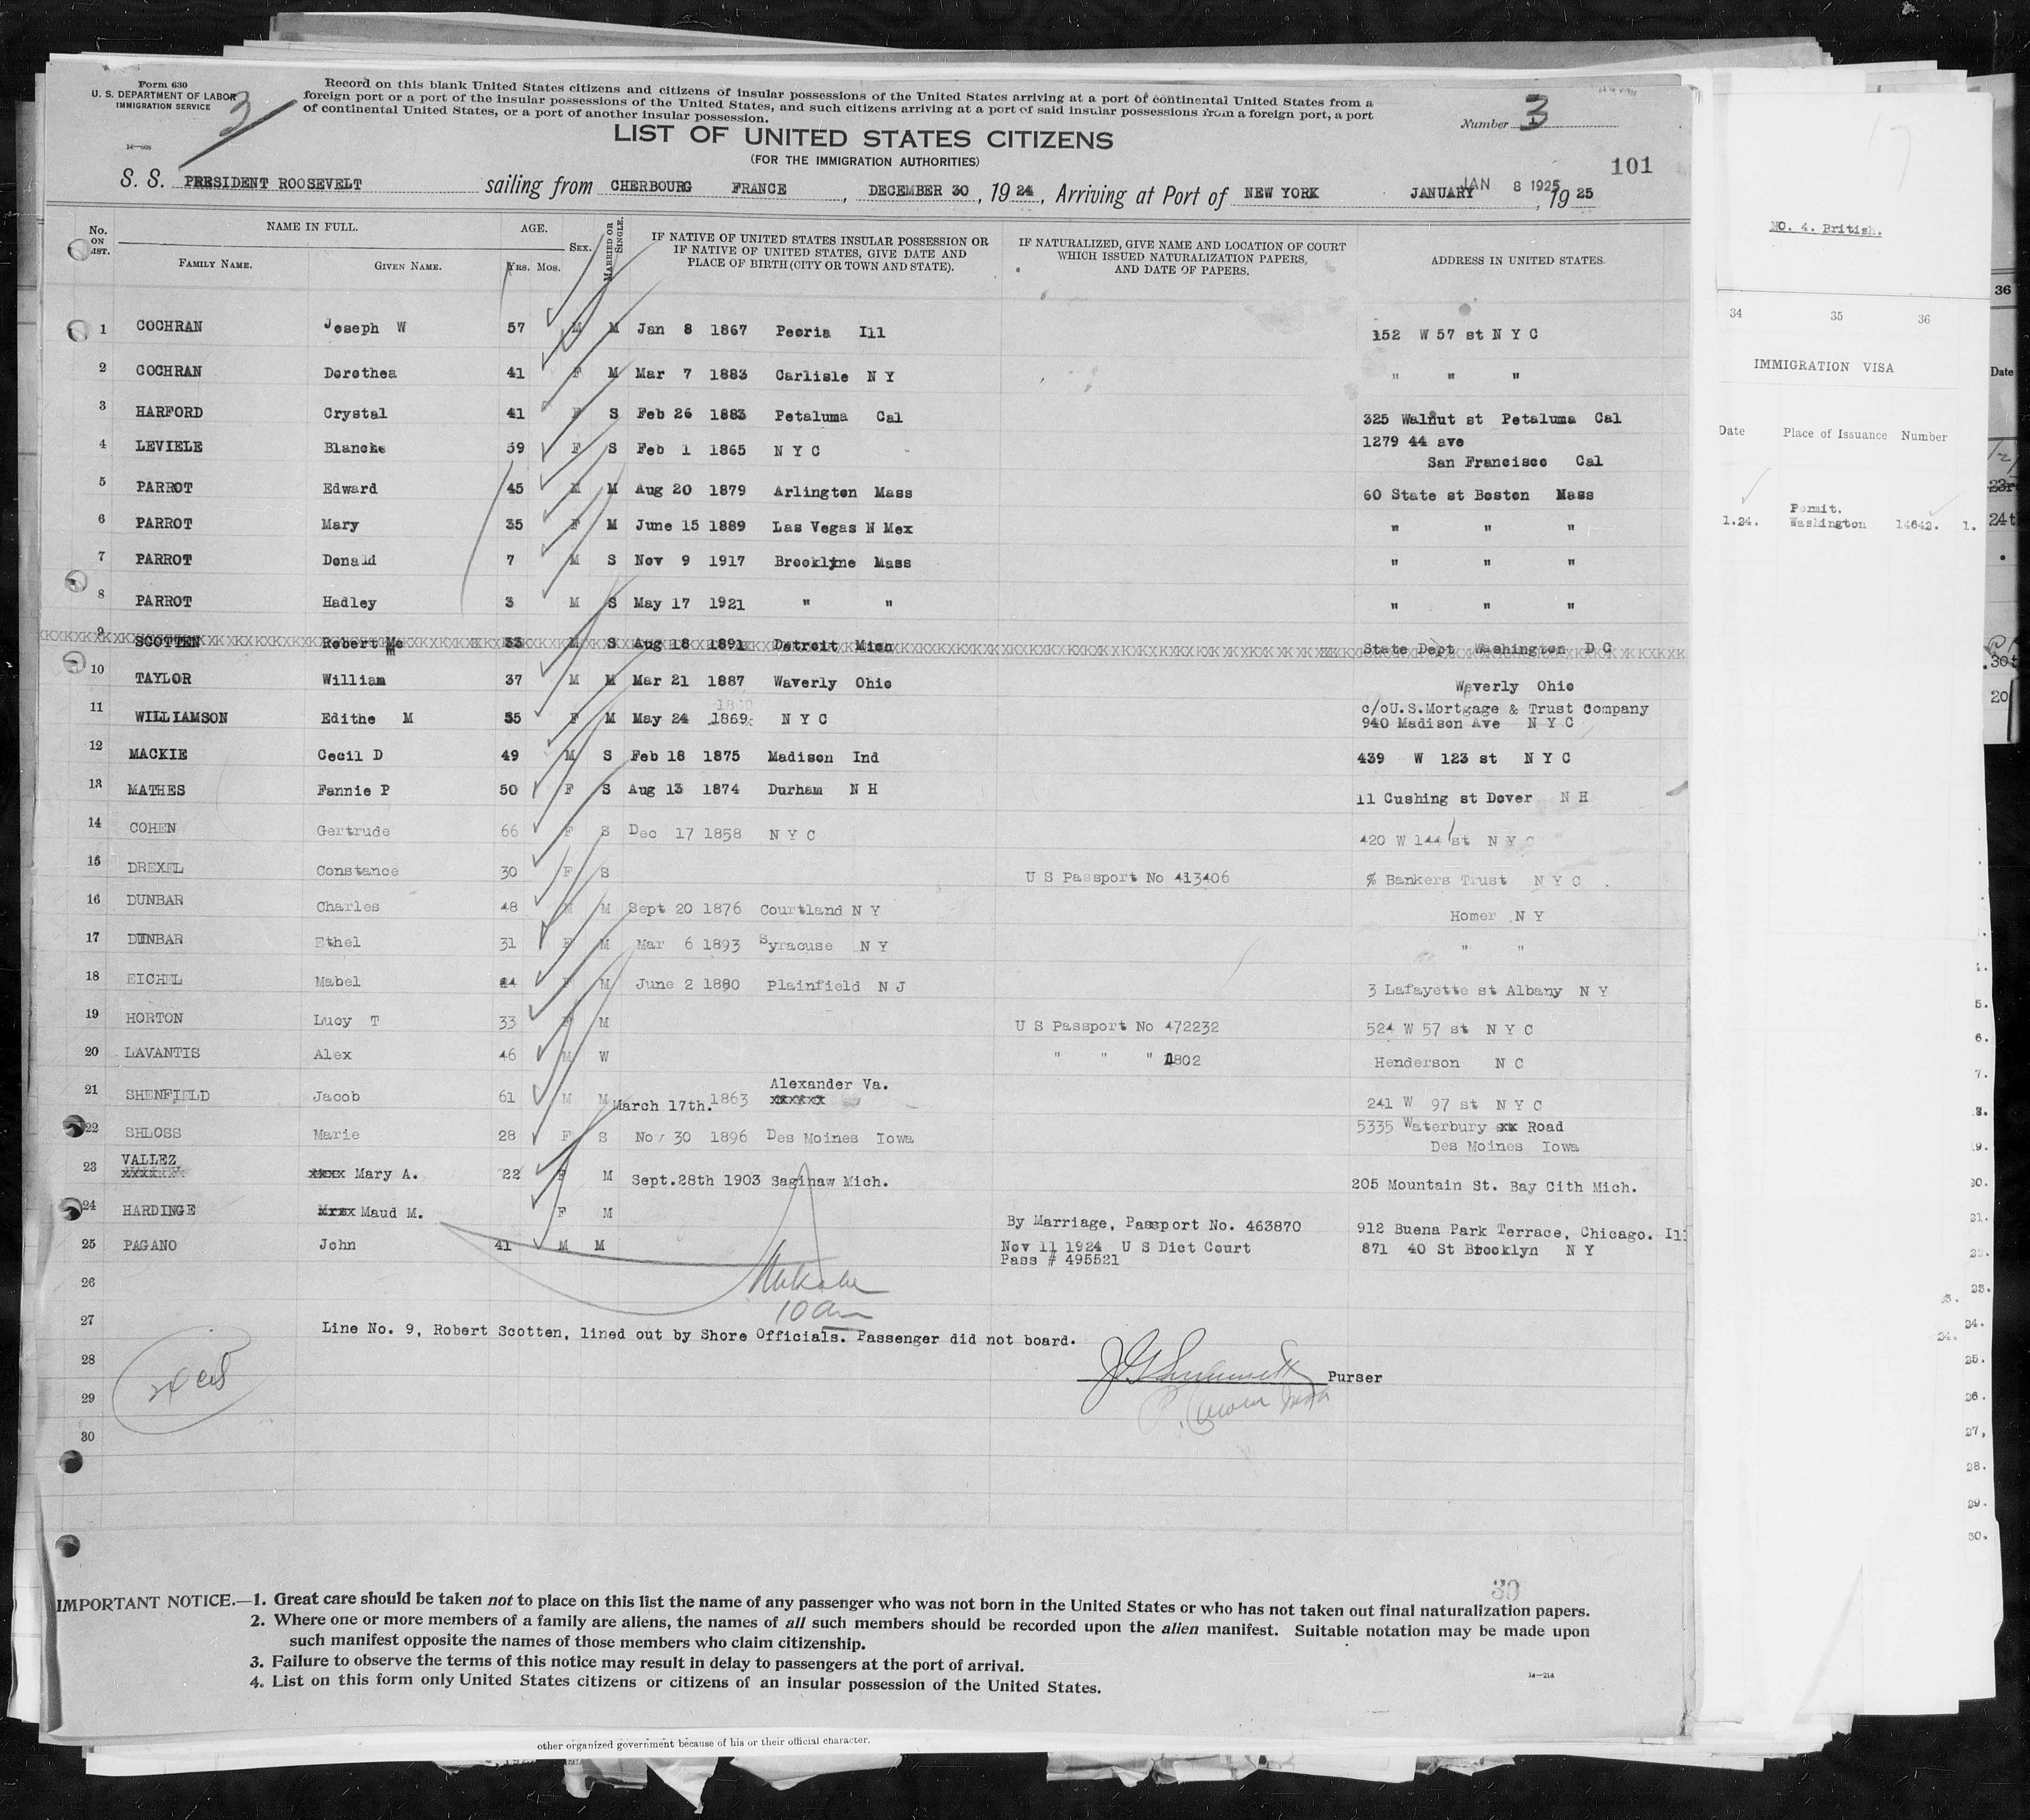 Form 630
U. S. DEPARTMENT OF LABOR
IMMIGRATION SERVICE
3
Record on this blank United States citizens and citizens of insular possessions of the United States arriving at a port of continental United States from a
foreign port or a port of the insular possessions of the United States, and such citizens arriving at a port of said insular possessions from a foreign port, a port
of continental United States, or a port of another insular possession.
Number 3
LIST OF UNITED STATES CITIZENS
(FOR THE IMMIGRATION AUTHORITIES)
101
S. S. PRESIDENT ROOSEVELT sailing from CHERBOURG FRANCE, DECEMBER 30, 1924, Arriving at Port of NEW YORK JANUARY JAN 8 1925, 1925
No. ON LIST. NAME IN FULL. FAMILY NAME. GIVEN NAME. AGE. YRS. MOS. SEX. MARRIED OR SINGLE. IF NATIVE OF UNITED STATES INSULAR POSSESSION OR IF NATIVE OF UNITED STATES, GIVE DATE AND PLACE OF BIRTH (CITY OR TOWN AND STATE). IF NATURALIZED, GIVE NAME AND LOCATION OF COURT WHICH ISSUED NATURALIZATION PAPERS, AND DATE OF PAPERS. ADDRESS IN UNITED STATES.
1 COCHRAN Joseph W 57 M M Jan 8 1867 Peoria Ill 152 W 57 st N Y C
2 COCHRAN Dorothea 41 F M Mar 7 1883 Carlisle N Y " " "
3 HARFORD Crystal 41 F S Feb 26 1883 Petaluma Cal 325 Walnut st Petaluma Cal
4 LEVIELE Blanche 59 F S Feb 1 1865 N Y C 1279 44 ave
San Francisco Cal
5 PARROT Edward 45 M M Aug 20 1879 Arlington Mass 60 State st Boston Mass
6 PARROT Mary 35 F M June 15 1889 Las Vegas N Mex " " "
7 PARROT Donald 7 M S Nov 9 1917 Brooklyne Mass " " "
8 PARROT Hadley 3 M S May 17 1921 " " " " "
9 SCOTTEN Robert Mc 33 M S Aug 18 1891 Detroit Mich State Dept Washington D C
10 TAYLOR William 37 M M Mar 21 1887 Waverly Ohio Waverly Ohio
11 WILLIAMSON Edithe M 55 F M May 24 1869 N Y C c/oU.S.Mortgage & Trust Company
940 Madison Ave N Y C
12 MACKIE Cecil D 49 M S Feb 18 1875 Madison Ind 439 W 123 st N Y C
13 MATHES Fannie P 50 F S Aug 13 1874 Durham N H 11 Cushing st Dover N H
14 COHEN Gertrude 66 F S Dec 17 1858 N Y C 420 W 144 st N Y C
15 DREXEL Constance 30 F S U S Passport No 413406 % Bankers Trust N Y C
16 DUNBAR Charles 48 M M Sept 20 1876 Courtland N Y Homer N Y
17 DUNBAR Ethel 31 F M Mar 6 1893 Syracuse N Y " "
18 EICHEL Mabel 44 F M June 2 1880 Plainfield N J 3 Lafayette st Albany N Y
19 HORTON Lucy T 33 F M U S Passport No 472232 524 W 57 st N Y C
20 LAVANTIS Alex 46 M W " " " 1802 Henderson N C
21 SHENFIELD Jacob 61 M M March 17th. 1863 Alexander Va. xxxxxx 241 W 97 st N Y C
22 SHLOSS Marie 28 F S Nov 30 1896 Des Moines Iowa 5335 Waterbury xx Road
Des Moines Iowa
23 VALLEZ xxxxxxx xxxx Mary A. 22 F M Sept.28th 1903 Saginaw Mich. 205 Mountain St. Bay Cith Mich.
24 HARDINGE Mrsx Maud M. F M By Marriage, Passport No. 463870 912 Buena Park Terrace, Chicago. Ill
25 PAGANO John 41 M M Nov 11 1924 U S Dict Court 871 40 St Brooklyn N Y
Pass # 495521
26
10 am
27
Line No. 9, Robert Scotten, lined out by Shore Officials. Passenger did not board.
28
Purser
29
30
30
IMPORTANT NOTICE.—1. Great care should be taken not to place on this list the name of any passenger who was not born in the United States or who has not taken out final naturalization papers.
2. Where one or more members of a family are aliens, the names of all such members should be recorded upon the alien manifest. Suitable notation may be made upon
such manifest opposite the names of those members who claim citizenship.
3. Failure to observe the terms of this notice may result in delay to passengers at the port of arrival.
4. List on this form only United States citizens or citizens of an insular possession of the United States.
14—214
other organized government because of his or their official character.
NO. 4. British.
34 35 36
IMMIGRATION VISA
Date Place of Issuance Number
Permit.
1.24. Washington 14642. 1.
36
Date
24t
30t
20
4.
5.
6.
7.
8.
19.
20.
21.
22.
23.
24.
25.
26.
27.
28.
29.
30.